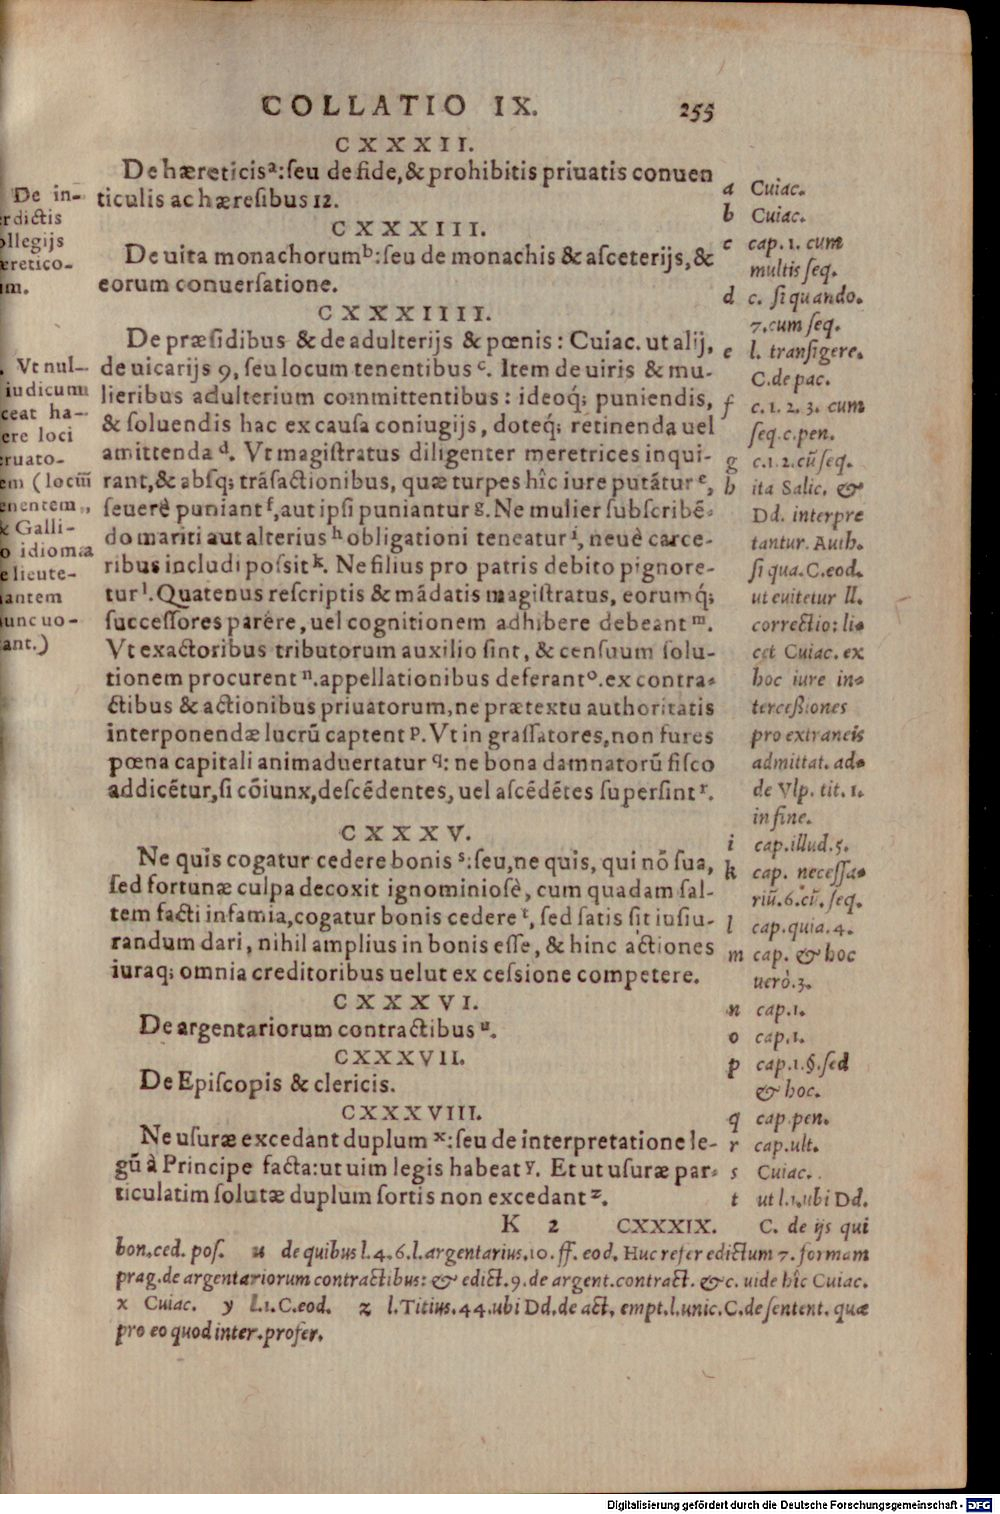 COLLATIO IX. 255
CXXXII.
De hæreticisᵃ: ſeu de fide, & prohibitis priuatis conuen
ticulis ac hæreſibus 12.
CXXXIII.
De uita monachorumᵇ: ſeu de monachis & aſceterijs, &
eorum conuerſatione.
CXXXIIII.
De præſidibus & de adulterijs & pœnis: Cuiac. ut alij,
de uicarijs 9, ſeu locum tenentibus ᶜ. Item de uiris & mu-
lieribus adulterium committentibus: ideoq́; puniendis,
& ſoluendis hac ex cauſa coniugijs, doteq́; retinenda uel
amittenda ᵈ. Vt magiſtratus diligenter meretrices inqui-
rant, & abſq; trãſactionibus, quæ turpes hîc iure putãtur ᵉ,
ſeuerè puniant ᶠ, aut ipſi puniantur ᵍ. Ne mulier ſubſcribẽ-
do mariti aut alterius ʰ obligationi teneatur ⁱ, neuè carce-
ribus includi poſsit ᵏ. Ne filius pro patris debito pignore-
tur ˡ. Quatenus reſcriptis & mãdatis magiſtratus, eorumq́;
ſucceſſores parére, uel cognitionem adhibere debeant ᵐ.
Vt exactoribus tributorum auxilio ſint, & cenſuum ſolu-
tionem procurent ⁿ. appellationibus deferant ᵒ. ex contra-
ctibus & actionibus priuatorum, ne prætextu authoritatis
interponendæ lucrũ captent ᵖ. Vt in graſſatores, non fures
pœna capitali animaduertatur q: ne bona damnatorũ fiſco
addicẽtur, ſi cõiunx, deſcẽdentes, uel aſcẽdẽtes ſuperſint ʳ.
CXXXV.
Ne quis cogatur cedere bonis ˢ: ſeu, ne quis, qui nõ ſua,
ſed fortunæ culpa decoxit ignominioſè, cum quadam ſal-
tem facti infamia, cogatur bonis cedere ᵗ, ſed ſatis ſit iuſiu-
randum dari, nihil amplius in bonis eſſe, & hinc actiones
iuraq; omnia creditoribus uelut ex ceſsione competere.
CXXXVI.
De argentariorum contractibus ᵘ.
CXXXVII.
De Epiſcopis & clericis.
CXXXVIII.
Ne uſuræ excedant duplum ˣ: ſeu de interpretatione le-
gũ à Principe facta: ut uim legis habeat ʸ. Et ut uſuræ par-
ticulatim ſolutæ duplum ſortis non excedant ᶻ.
K 2 CXXXIX.
De in-
rdictis
ollegijs
æretico-
im.
. Vt nul-
iudicum
ceat ha-
ere loci
eruato-
em (locũ
enentem,
& Galli-
o idioma
e lieute-
nantem
nunc uo-
ant.)
a Cuiac.
b Cuiac.
c cap. 1. cum
multis ſeq.
d c. ſi quando.
7. cum ſeq.
e l. tranſigere.
C. de pac.
f c. 1. 2. 3. cum
ſeq. c. pen.
g c. 1. 2. cũ ſeq.
h ita Salic. &
Dd. interpre
tantur. Auth.
ſi qua. C. eod.
ut euitetur ll.
correctio: li-
cet Cuiac. ex
hoc iure in-
terceßiones
pro extraneis
admittat. ad-
de Vlp. tit. 1.
in fine.
i cap. illud. 5.
k cap. neceſſa-
riũ. 6. cũ. ſeq.
l cap. quia. 4.
m cap. & hoc
uerò. 3.
n cap. 1.
o cap. 1.
p cap. 1. §. ſed
& hoc.
q cap. pen.
r cap. ult.
s Cuiac.
t ut l. 1. ubi Dd.
C. de ijs qui
bon. ced. poſ. u de quibus l. 4. 6. l. argentarius. 10. ff. eod. Huc refer edictum 7. formam
prag. de argentariorum contractibus: & edict. 9. de argent. contract. &c. uide hîc Cuiac.
x Cuiac. y l. 1. C. eod. z l. Titius. 44. ubi Dd. de act. empt. l. unic. C. de ſentent. quæ
pro eo quod inter. profer.
Digitalisierung gefördert durch die Deutsche Forschungsgemeinschaft - DFG